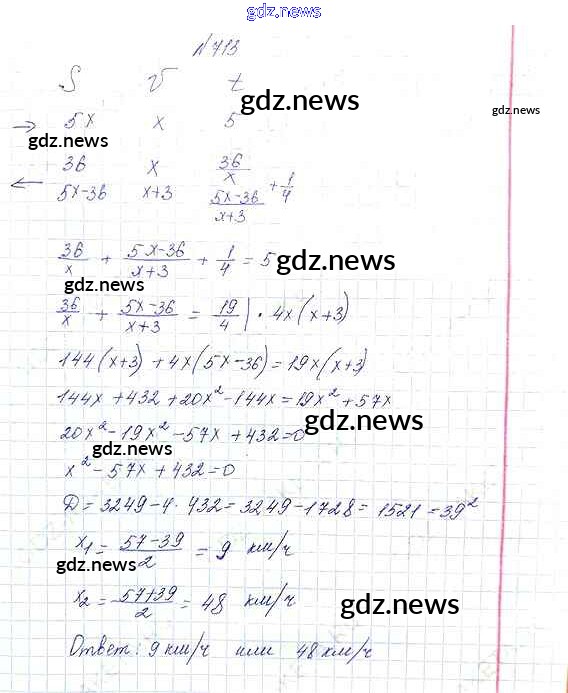 gdz.news
N 713
S V t
gdz.news
gdz.news
→ 5x x 5
gdz.news
36 x 36/x
← 5x-36 x+3 (5x-36)/(x+3) + 1/4
36/x + (5x-36)/(x+3) + 1/4 = 5
gdz.news
gdz.news
36/x + (5x-36)/(x+3) = 19/4 | · 4x(x+3)
144(x+3) + 4x(5x-36) = 19x(x+3)
144x + 432 + 20x² - 144x = 19x² + 57x
gdz.news
20x² - 19x² - 57x + 432 = 0
gdz.news
x² - 57x + 432 = 0
D = 3249 - 4 · 432 = 3249 - 1728 = 1521 = 39²
x₁ = (57-39)/2 = 9 км/ч
gdz.news
x₂ = (57+39)/2 = 48 км/ч
gdz.news
Ответ: 9 км/ч или 48 км/ч